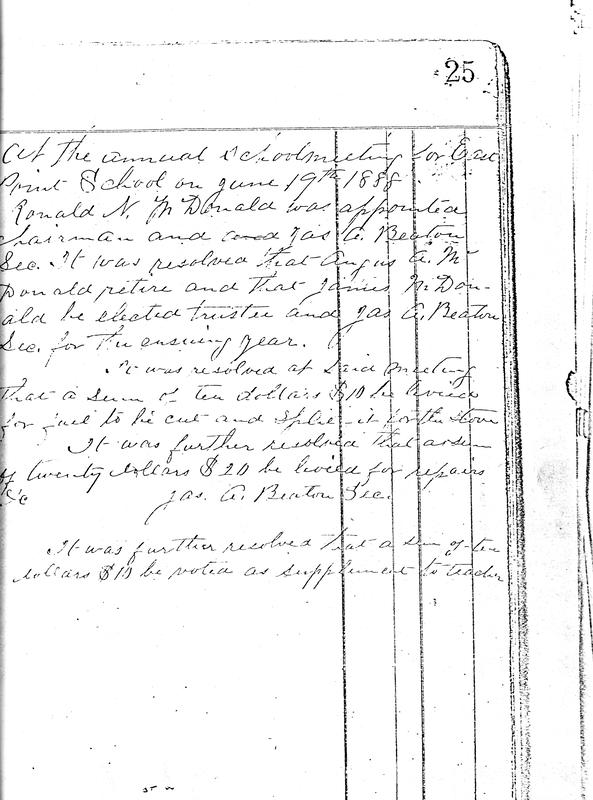 25
At the annual Schoolmeeting for East
Point School on June 19th 1888
Ronald N. McDonald was appointed
Chairman and Jas A. Beaton
Sec. It was resolved that Angus A. Mc
Donald retire and that James McDon-
ald be elected trustee and Jas A. Beaton
Sec. for the ensuing year.
It was resolved at said meeting
that a sum of ten dollars $10 be levied
for fuel to be cut and split it for the stove
It was further resolved that a sum
of twenty dollars $20 be levied for repairs
&c Jas. A. Beaton Sec.
It was further resolved that a sum of ten
dollars $10 be voted as supplement to teacher